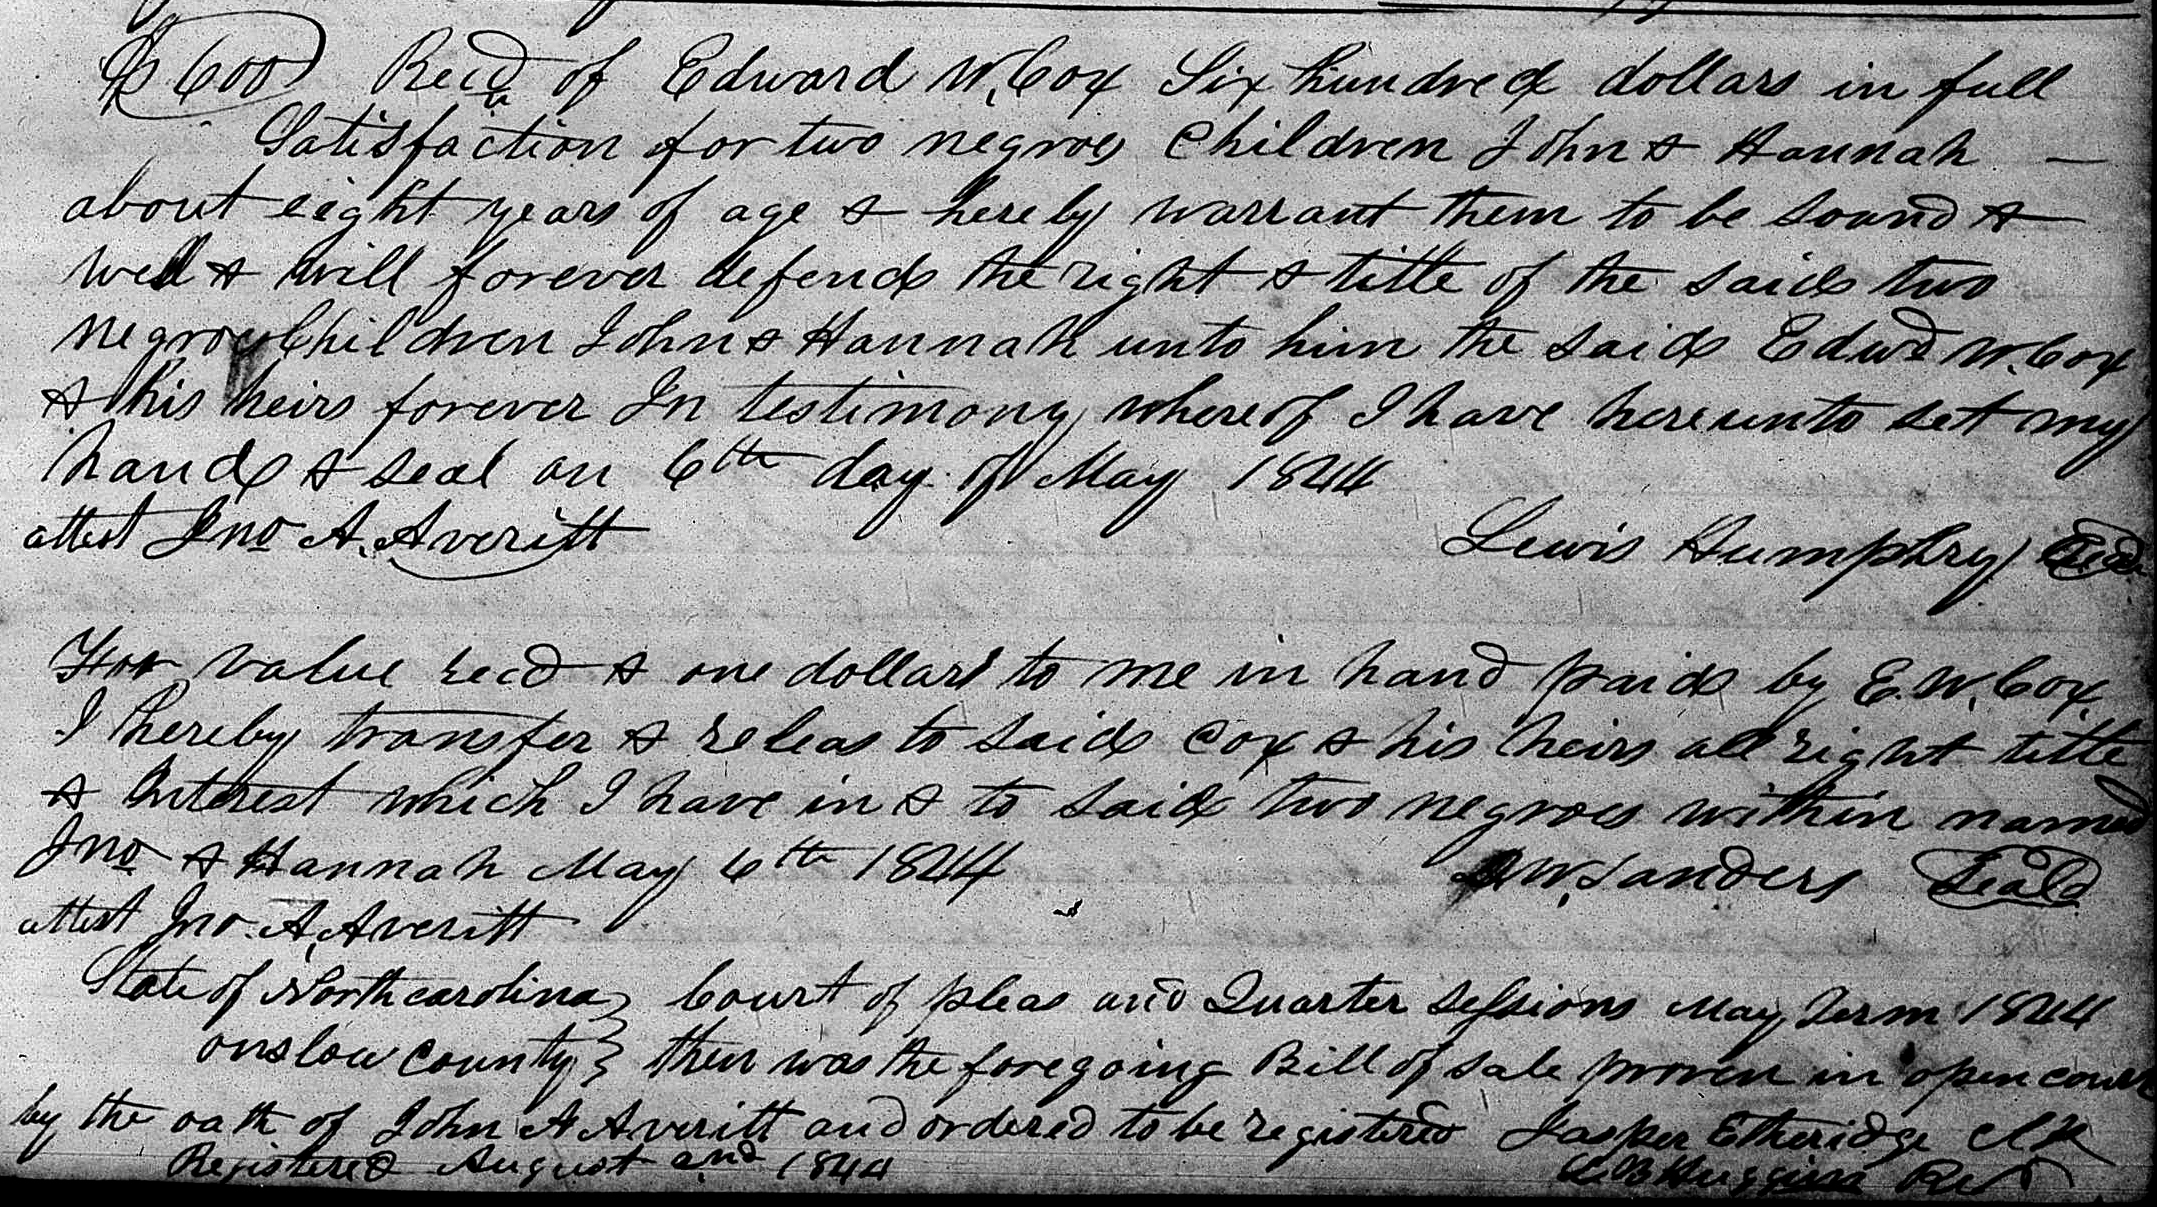 $600 Recd of Edward W. Cox Six hundred dollars in full
Satisfaction for two negroes Children John & Hannah —
about eight years of age & hereby warrant them to be sound &
well & will forever defend the right & title of the said two
negroes Children John & Hannah unto him the said Edwd W. Cox
& his heirs forever In testimony whereof I have hereunto set my
hand & seal on 6th day of May 1844
attest Jno A. Averitt
Lewis Humphry Seal
For value recd & one dollar to me in hand paid by E. W. Cox
I hereby transfer & releas to said Cox & his heirs all right title
& Interest which I have in & to said two negroes within named
Jno & Hannah May 6th 1844 D W. Sanders Seald
attest Jno. A. Averitt
State of North carolina } Court of pleas and Quarter Sessions May Term 1844
onslow County } then was the foregoing Bill of sale proven in open court
by the oath of John A Averitt and ordered to be registered Jasper Etheridge Clk
Registered August 2nd 1844 Huggins